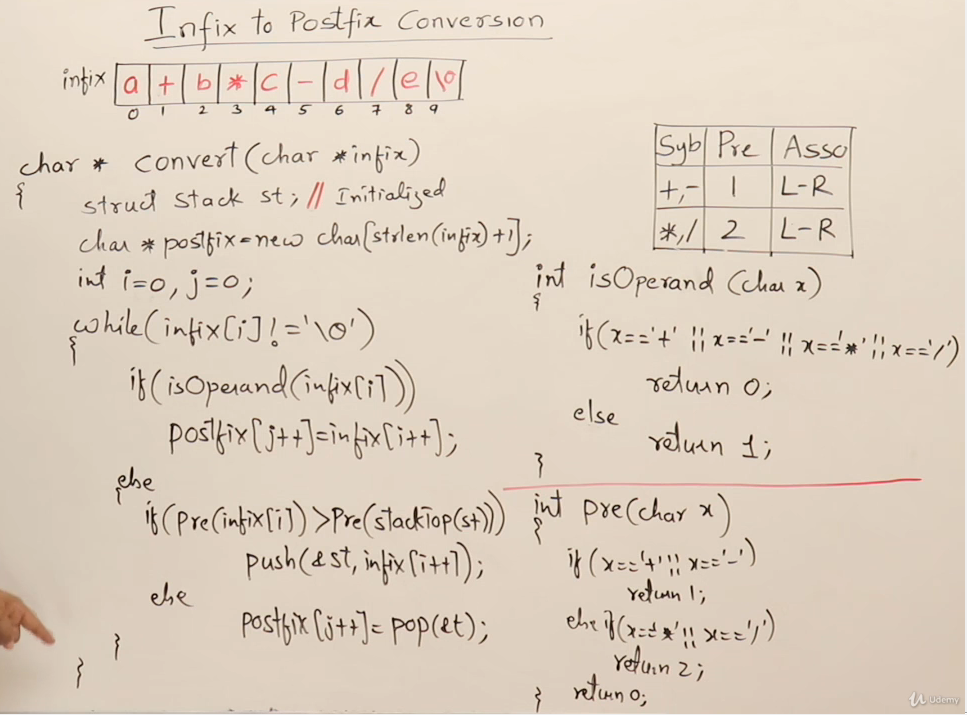 Infix to Postfix Conversion
infix a + b * c - d / e \0
0 1 2 3 4 5 6 7 8 9
char * convert(char *infix)
{
struct stack st; // Initialized
char * postfix=new char[strlen(infix)+1];
int i=0, j=0;
while(infix[i]!='\0')
{
if(isOperand(infix[i]))
postfix[j++]=infix[i++];
else
{
if(Pre(infix[i])>Pre(stackTop(st)))
push(&st, infix[i++]);
else
postfix[j++]=pop(&t);
}
}
Syb Pre Asso
+,- 1 L-R
*,/ 2 L-R
int isOperand (char x)
{
if(x=='+' || x=='-' || x=='*' || x=='/')
return 0;
else
return 1;
}
int pre(char x)
{
if(x=='+' || x=='-')
return 1;
else if(x=='*' || x=='/')
return 2;
return 0;
}
Udemy